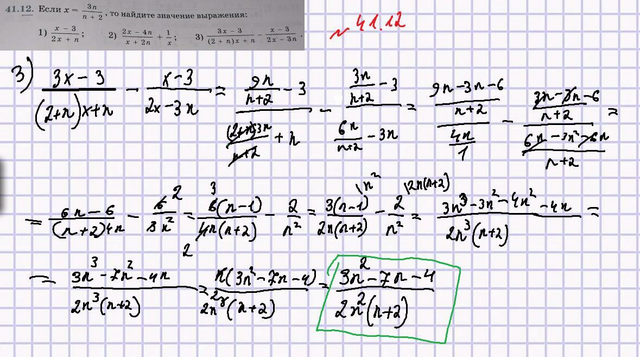 41.12. Если x = 3n/(n + 2), то найдите значение выражения:
1) (x − 3)/(2x + n); 2) (2x − 4n)/(x + 2n) + 1/x; 3) (3x − 3)/((2 + n)x + n) − (x − 3)/(2x − 3n).
~41.12
3) (3x − 3)/((2+n)x+n) − (x−3)/(2x−3n) = (9n/(n+2) − 3)/((2+n)3n/(n+2) + n) − (3n/(n+2) − 3)/(6n/(n+2) − 3n) = ((9n−3n−6)/(n+2))/(4n/1) − ((3n−3n−6)/(n+2))/((6n−3n²−6n)/(n+2)) =
= (6n−6)/((n+2)4n) − 6 2/3n² = 3 6(n−1)/(4n(n+2) 2) − 2/n² = 3(n−1)\n²/(2n(n+2)) − 2\2n(n+2)/n² = (3n³−3n²−4n²−4n)/(2n³(n+2)) =
= (3n³−7n²−4n)/(2n³(n+2)) = n(3n²−7n−4)/(2n³ 2(n+2)) = (3n²−7n−4)/(2n²(n+2))